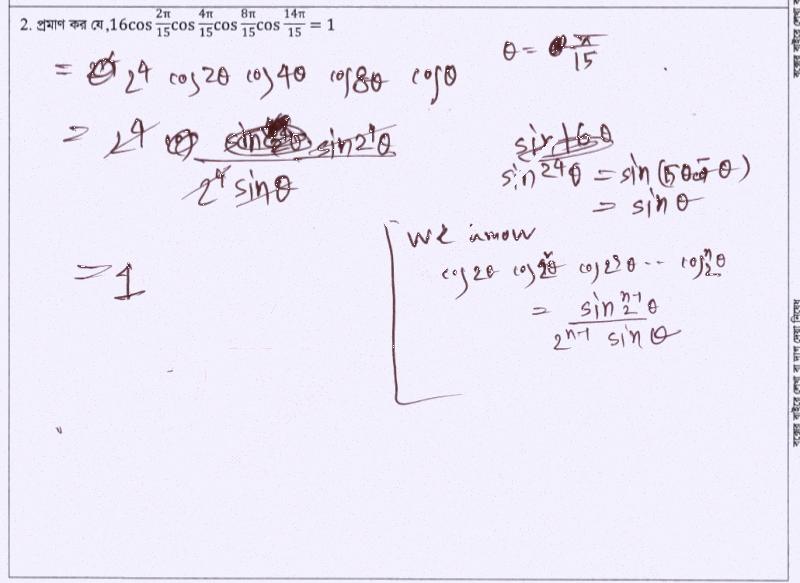 2. প্রমাণ কর যে,16cos 2π/15 cos 4π/15 cos 8π/15 cos 14π/15 = 1
θ = π/15
= 2^4 cos2θ cos4θ cos8θ cosθ
= 2^4 sin2^4θ / 2^4 sinθ
sin16θ
sin2^4θ = sin(
= sinθ
= 1
We know
cos2θ cos2^2θ cos2^3θ .. cos2^nθ
= sin2^(n-1)θ / 2^(n-1) sinθ